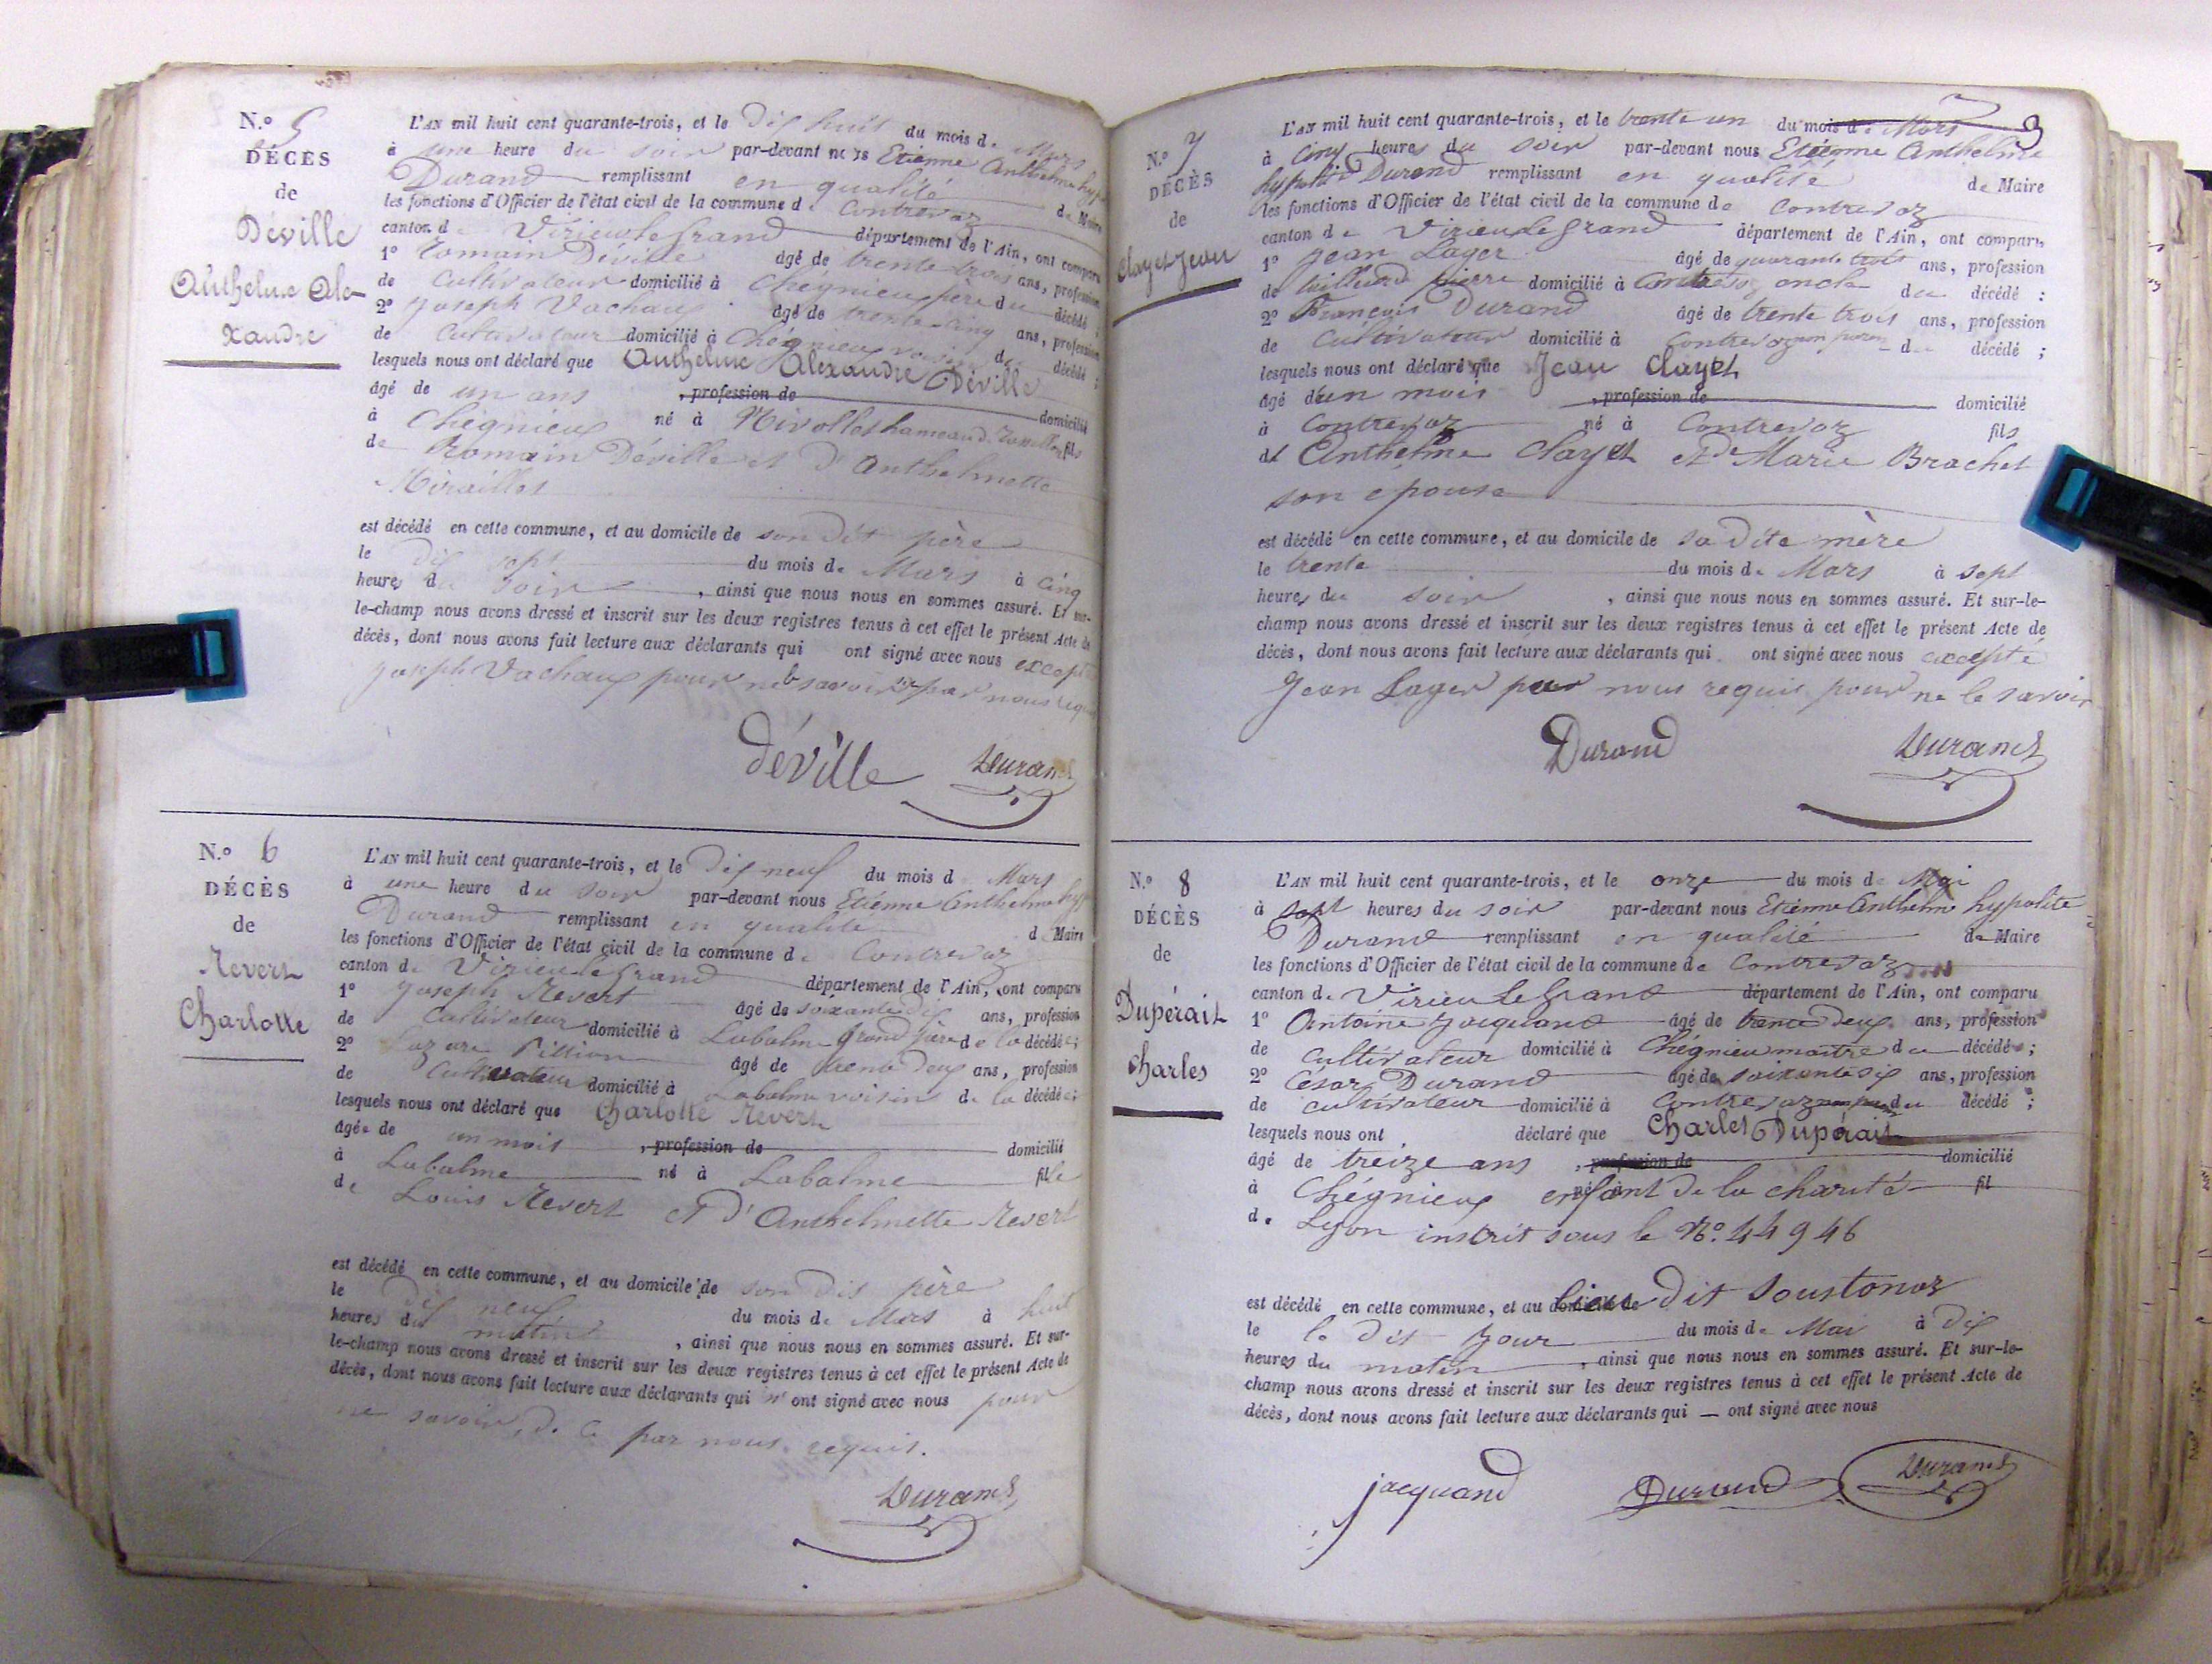 N.º 5
DÉCÈS
de
Déville
Anthelme Ale-
xandre
L'AN mil huit cent quarante-trois, et le dix huit du mois de Mars
à une heure du soir par-devant nous Etienne Anthelme hyp
Durand remplissant en qualité de Maire
les fonctions d'Officier de l'état civil de la commune de Contrevoz
canton de Virieu le Grand département de l'Ain, ont comparu
1º Romain Déville âgé de trente trois ans, profession
de Cultivateur domicilié à Chégnieu père du décédé ;
2º Joseph Vachaux âgé de trente cinq ans, profession
de Cultivateur domicilié à Chégnieux voisin du décédé ;
lesquels nous ont déclaré que Anthelme Alexandre Déville
âgé de un ans , profession de domicilié
à Chégnieux né à Nivollet hameau de Rossillon fils
de Romain Déville et d'Anthelmette
Miraillet
est décédé en cette commune, et au domicile de son dit père
le dix sept du mois de Mars à cinq
heures du soir , ainsi que nous nous en sommes assuré. Et sur-
le-champ nous avons dressé et inscrit sur les deux registres tenus à cet effet le présent Acte de
décès, dont nous avons fait lecture aux déclarants qui ont signé avec nous except
Joseph Vachaux pour ne savoir par nous requi
déville Durand
N.º 6
DÉCÈS
de
Revert
Charlotte
L'AN mil huit cent quarante-trois, et le dix neuf du mois d Mars
à une heure du soir par-devant nous Etienne Anthelme hyp
Durand remplissant en qualité d Maire
les fonctions d'Officier de l'état civil de la commune de Contrevoz
canton de Virieu le Grand département de l'Ain, ont comparu
1º Joseph Revert âgé de soixante dix ans, profession
de Cultivateur domicilié à Labalme Grand père de la décédée ;
2º Lazare Pillion âgé de trente deux ans, profession
de Cultivateur domicilié à Labalme voisin de la décédée ;
lesquels nous ont déclaré que Charlotte Revert
âgée de un mois , profession de domicilié
à Labalme né à Labalme fille
de Louis Revert et d'Anthelmette Revert
est décédé en cette commune, et au domicile de son dit père
le dix neuf du mois de Mars à huit
heures du matin , ainsi que nous nous en sommes assuré. Et sur-
le-champ nous avons dressé et inscrit sur les deux registres tenus à cet effet le présent Acte de
décès, dont nous avons fait lecture aux déclarants qui n' ont signé avec nous pour
ne savoir, de ce par nous requis.
Durand
9
N.º 7
DÉCÈS
de
Clayet Jean
L'AN mil huit cent quarante-trois, et le trente un du mois de Mars
à cinq heures du soir par-devant nous Etienne Anthelme
hypolite Durand remplissant en qualité de Maire
les fonctions d'Officier de l'état civil de la commune de Contrevoz
canton de Virieu le Grand département de l'Ain, ont comparu
1º Jean Lager âgé de quarante trois ans, profession
de tailleur d pierre domicilié à Contrevoz oncle du décédé :
2º François Durand âgé de trente trois ans, profession
de Cultivateur domicilié à Contrevoz non parent du décédé ;
lesquels nous ont déclaré que Jean Clayet
âgé d'un mois , profession de domicilié
à Contrevoz né à Contrevoz fils
d' Anthelme Clayet et de Marie Brachet
son épouse
est décédé en cette commune, et au domicile de sa dite mère
le trente du mois de Mars à sept
heures du soir , ainsi que nous nous en sommes assuré. Et sur-le-
champ nous avons dressé et inscrit sur les deux registres tenus à cet effet le présent Acte de
décès, dont nous avons fait lecture aux déclarants qui ont signé avec nous excepté
Jean Lager par nous requis pour ne le savoir
Durand Durand
N.º 8
DÉCÈS
de
Dupérait
Charles
L'AN mil huit cent quarante-trois, et le onze du mois de Mai
à sept heures du soir par-devant nous Etienne Anthelme hypolite
Durand remplissant en qualité de Maire
les fonctions d'Officier de l'état civil de la commune de Contrevoz
canton de Virieu le Grand département de l'Ain, ont comparu
1º Antoine Jacquand âgé de trente deux ans, profession
de cultivateur domicilié à Chégnieu maître du décédé ;
2º César Durand âgé de soixante six ans, profession
de cultivateur domicilié à Contrevoz non parent du décédé ;
lesquels nous ont déclaré que Charles Dupérait
âgé de treize ans , profession de domicilié
à Chégnieux enfant de la charité fil
de Lyon inscrit sous le Nº. 44946
est décédé en cette commune, et au lieu dit Soustonoz
le le dit jour du mois de Mai à dix
heures du matin , ainsi que nous nous en sommes assuré. Et sur-le-
champ nous avons dressé et inscrit sur les deux registres tenus à cet effet le présent Acte de
décès, dont nous avons fait lecture aux déclarants qui — ont signé avec nous
jacquand Durand Durand